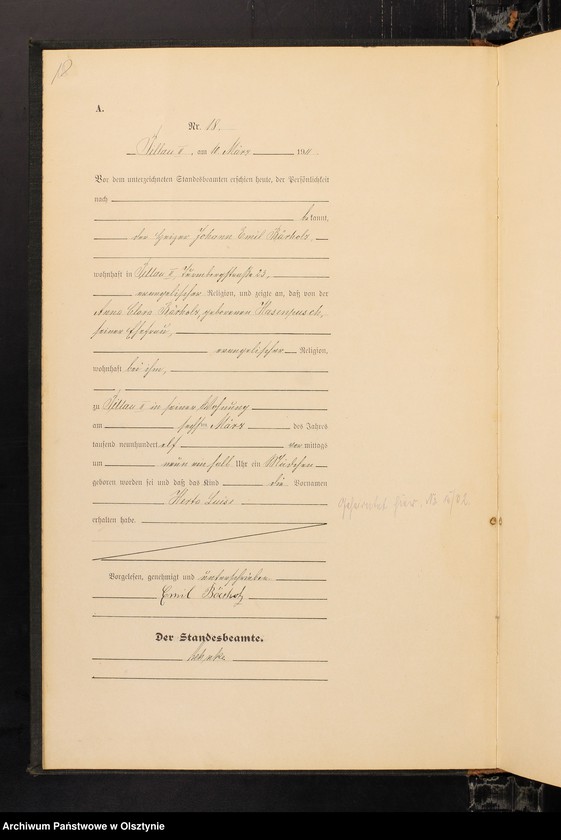 18
A.
Nr. 18.
Pillau II, am 11 März 1911
Vor dem unterzeichneten Standesbeamten erschien heute, der Persönlichkeit
nach
bekannt,
der Heizer Johann Emil Bärholz,
wohnhaft in Pillau II, Turmbergstraße 23,
evangelischer Religion, und zeigte an, daß von der
Anna Clara Bärholz, geborenen Hasenpusch,
seiner Ehefrau,
evangelischer Religion,
wohnhaft bei ihm,
zu Pillau II in seiner Wohnung
am März des Jahres
tausend neunhundert elf vormittags
um neun ein halb Uhr ein Mädchen
geboren worden sei und daß das Kind die Vornamen
Herta Luise
erhalten habe.
Vorgelesen, genehmigt und unterschrieben
Emil
Der Standesbeamte.
Archiwum Państwowe w Olsztynie